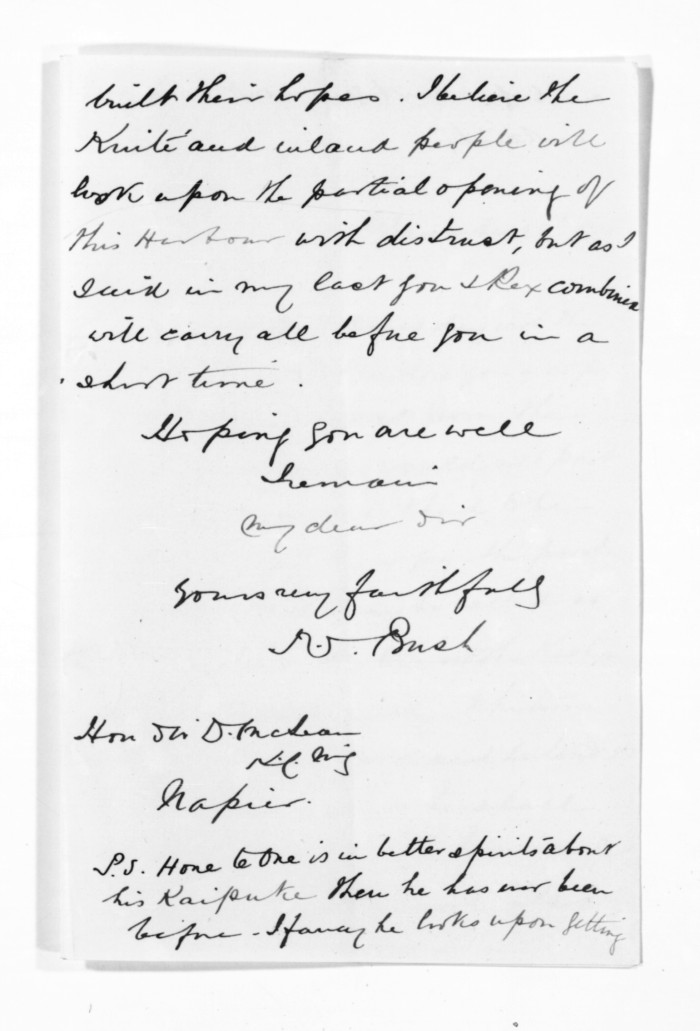 built their hopes. I believe the
Kuiti and inland people will
look upon the partial opening of
this Harbour with distrust, but as I
said in my last you & Rex combined
will carry all before you in a
short time.
Hoping you are well
I remain
My dear Sir
Yours very faithfully
R.S. Bush
Hon Sir D. McLean
K.C.M.G
Napier.
P.S. Hone te One is in better spirits about
his Kaipuke then he has ever been
before - I fancy he looks upon getting